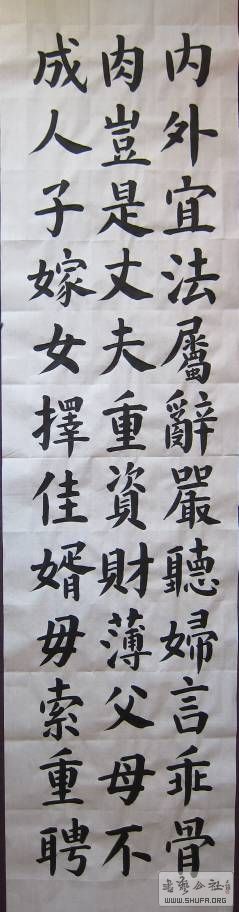 內外宜法屬辭嚴聽婦言乖骨
肉豈是丈夫重資財薄父母不
成人子嫁女擇佳婿毋索重聘
書藝公社
WWW.SHUFA.ORG